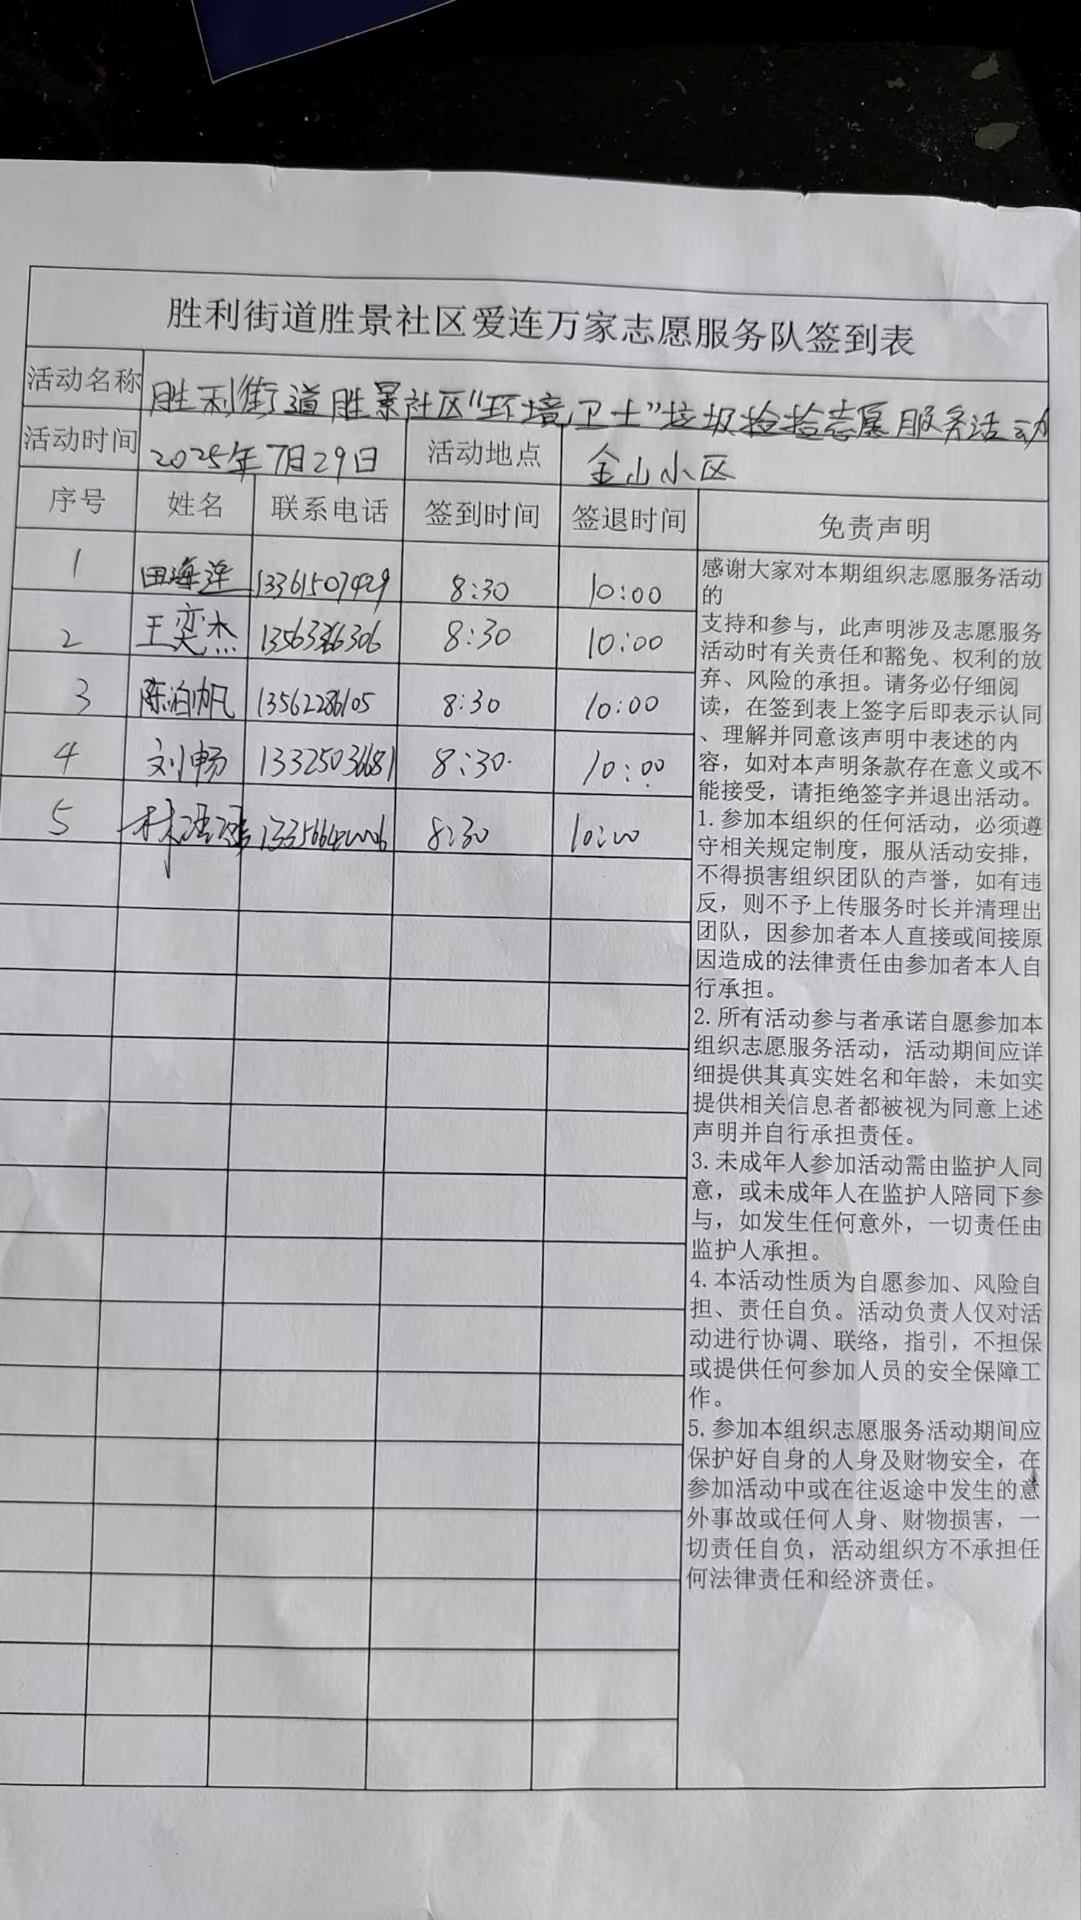 胜利街道胜景社区爱连万家志愿服务队签到表
活动名称 胜利街道胜景社区“环境卫士”垃圾捡拾志愿服务活动
活动时间 2025年7月29日 活动地点 金山小区
序号 姓名 联系电话 签到时间 签退时间 免责声明
1 田海连 13361507429 8:30 10:00
2 王奕杰 8:30 10:00
3 陈泊帆 13562286105 8:30 10:00
4 刘畅 13325036681 8:30 10:00
5 林 8:30 10:00
感谢大家对本期组织志愿服务活动
的
支持和参与，此声明涉及志愿服务
活动时有关责任和豁免、权利的放
弃、风险的承担。请务必仔细阅
读，在签到表上签字后即表示认同
、理解并同意该声明中表述的内
容，如对本声明条款存在意义或不
能接受，请拒绝签字并退出活动。
1.参加本组织的任何活动，必须遵
守相关规定制度，服从活动安排，
不得损害组织团队的声誉，如有违
反，则不予上传服务时长并清理出
团队，因参加者本人直接或间接原
因造成的法律责任由参加者本人自
行承担。
2.所有活动参与者承诺自愿参加本
组织志愿服务活动，活动期间应详
细提供其真实姓名和年龄，未如实
提供相关信息者都被视为同意上述
声明并自行承担责任。
3.未成年人参加活动需由监护人同
意，或未成年人在监护人陪同下参
与，如发生任何意外，一切责任由
监护人承担。
4.本活动性质为自愿参加、风险自
担、责任自负。活动负责人仅对活
动进行协调、联络，指引，不担保
或提供任何参加人员的安全保障工
作。
5.参加本组织志愿服务活动期间应
保护好自身的人身及财物安全，在
参加活动中或在往返途中发生的意
外事故或任何人身、财物损害，一
切责任自负，活动组织方不承担任
何法律责任和经济责任。